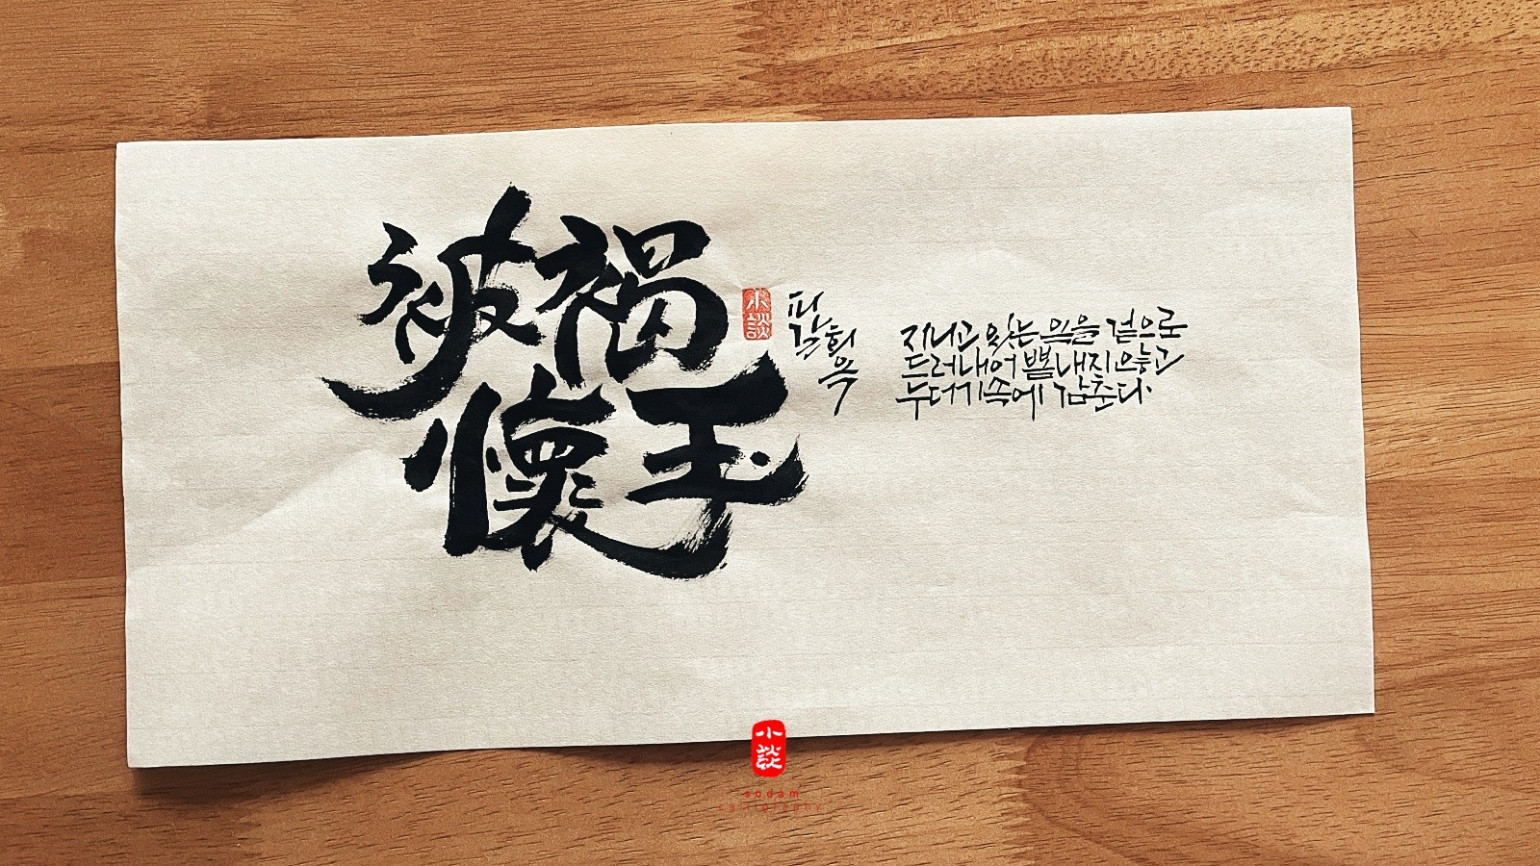 被褐
懷玉
小談
피갈회옥
지니고 있는 옥을 겉으로
드러내어 뽐내지 않고
누더기 속에 감춘다.
小談
sodam
calligraphy